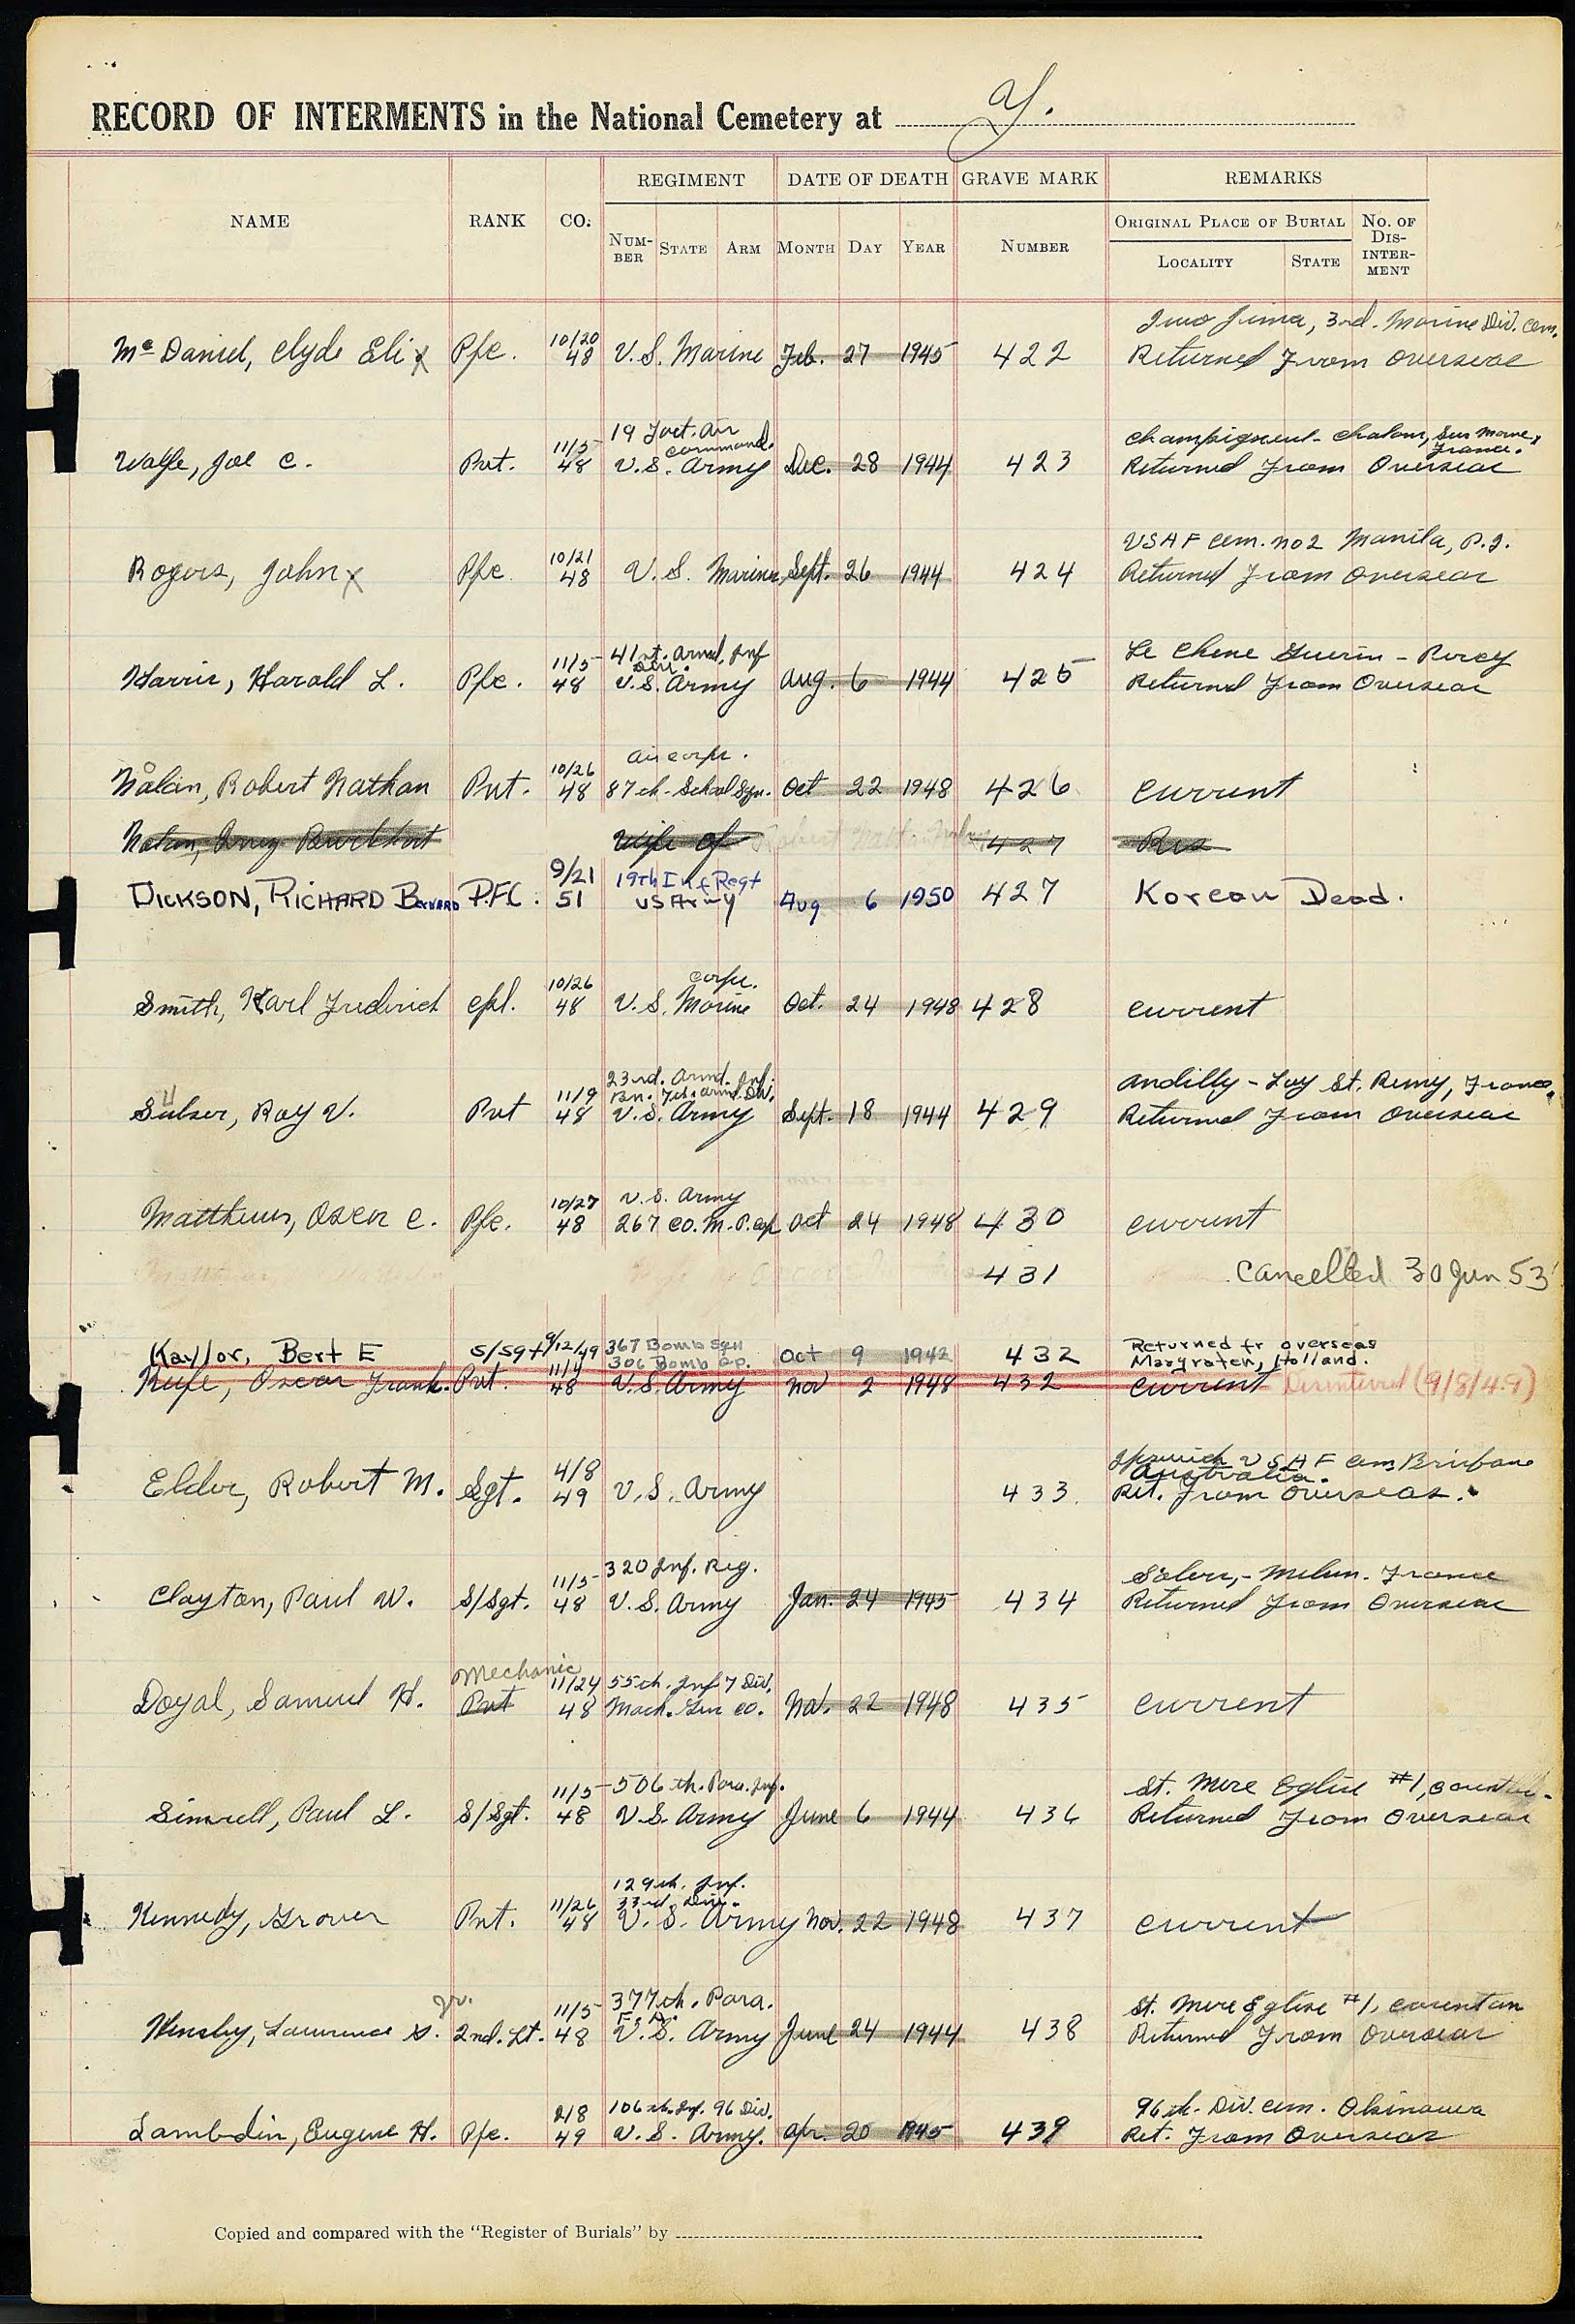 RECORD OF INTERMENTS in the National Cemetery at Y.
NAME RANK CO. REGIMENT DATE OF DEATH GRAVE MARK REMARKS
NUM-BER STATE ARM MONTH DAY YEAR NUMBER ORIGINAL PLACE OF BURIAL NO. OF DIS-INTER-MENT
LOCALITY STATE
Iwo Jima, 3rd. Marine Div. Cem.
McDaniel, Clyde Eli x Pfc. 10/20 48 U.S. Marine Feb. 27 1945 422 Returned From Overseas
19 Tact. Air Command. Champigneul - Chalon, Sur Marne, France.
Wolfe, Joe C. Pvt. 11/5 48 U.S. Army Dec. 28 1944 423 Returned From Overseas
USAF Cem. no 2 Manila, P.I.
Rogers, John x Pfc. 10/21 48 U.S. Marines Sept. 26 1944 424 Returned From Overseas
41st. Armd. Inf Le Chene Guerin - Percy
Harris, Harold L. Pfc. 11/5 48 U.S. Army Aug. 6 1944 425 Returned From Overseas
Air Corps.
Nolan, Robert Nathan Pvt. 10/26 48 87th. School Sqn. Oct 22 1948 426 Current
Wife of 427 Res
DICKSON, RICHARD BERNARD P.F.C. 9/21 51 19th Inf Regt US Army Aug 6 1950 427 Korean Dead.
Corps.
Smith, Karl Frederick Cpl. 10/26 48 U.S. Marine Oct. 24 1948 428 Current
23rd. Armd. Inf. Bn. 7th. Armd. Div. Andilly - Toy St. Remy, France.
Sulser, Roy V. Pvt 11/9 48 U.S. Army Sept. 18 1944 429 Returned From Overseas
U.S. Army
Matthews, Oscar C. Pfc. 10/27 48 267 Co. M.P. Corp Oct 24 1948 430 Current
431 Cancelled 30 Jun 53
Kaylor, Bert E S/Sgt 9/12/49 367 Bomb Sqn 306 Bomb Gp. Oct 9 1942 432 Returned fr overseas Margraten, Holland.
Oscar Frank. Pvt. 11/4 48 U.S. Army Nov 2 1948 432 Current Disinterred (9/8/49)
Ipswich USAF Cem Brisbane Australia.
Elder, Robert M. Sgt. 4/8 49 U.S. Army 433 Ret. From Overseas.
320 Inf. Reg. Solers, - Melun. France
Clayton, Paul W. S/Sgt. 11/5 48 U.S. Army Jan. 24 1945 434 Returned From Overseas
Mechanic 55th. Inf 7 Div.
Doyal, Samuel H. Pvt 11/24 48 Mach. Gun Co. Nov. 22 1948 435 Current
506th. Para. Inf. St. Mere Eglise #1,
Simrell, Paul L. S/Sgt. 11/5 48 U.S. Army June 6 1944 436 Returned From Overseas
129th. Inf. 33rd. Div.
Kennedy, Grover Pvt. 11/26 48 U.S. Army Nov. 22 1948 437 Current
Jr. 377th. Para. F.A. St. Mere Eglise #1, Carentan
Hensley, Lawrence S. 2nd. Lt. 11/5 48 U.S. Army June 24 1944 438 Returned From Overseas
106th. Inf. 96 Div. 96th. Div. Cem. Okinawa
Lambdin, Eugene H. Pfc. 2/8 49 U.S. Army. Apr. 20 1945 439 Ret. From Overseas
Copied and compared with the "Register of Burials" by